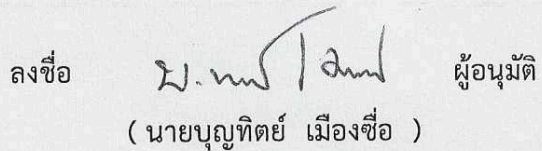 ลงชื่อ ผู้อนุมัติ
( นายบุญทิตย์ เมืองซื่อ )